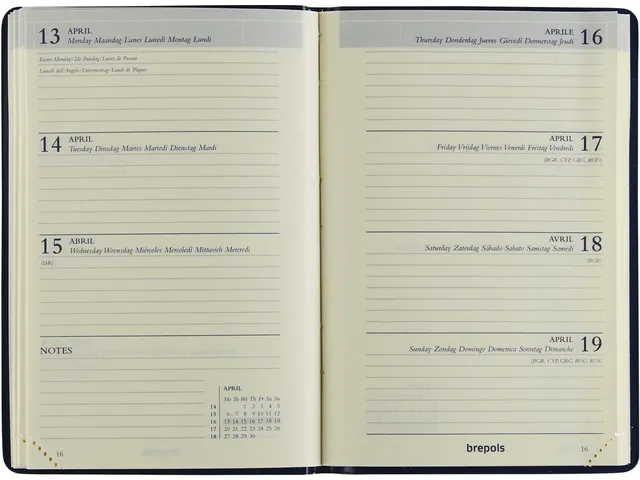 13 APRIL
Monday Maandag Lunes Lunedi Montag Lundi
Easter Monday/2de Paasdag/Lunes de Pascua
Lunedi dell'Angelo/Ostermontag/Lundi de Pâques
14 APRIL
Tuesday Dinsdag Martes Martedi Dienstag Mardi
15 ABRIL
Wednesday Woensdag Miércoles Mercoledi Mittwoch Mercredi
(ISR)
NOTES
APRIL
Mo Tu We Th Fr Sa Su
14 1 2 3 4 5
15 6 7 8 9 10 11 12
16 13 14 15 16 17 18 19
17 20 21 22 23 24 25 26
18 27 28 29 30
16
APRILE 16
Thursday Donderdag Jueves Giovedi Donnerstag Jeudi
APRIL 17
Friday Vrijdag Viernes Venerdi Freitag Vendredi
(BGR, CYP, GRC, ROU)
AVRIL 18
Saturday Zaterdag Sábado Sabato Samstag Samedi
(BGR)
APRIL 19
Sunday Zondag Domingo Domenica Sonntag Dimanche
(BGR, CYP, GRC, ROU, RUS)
brepols
16